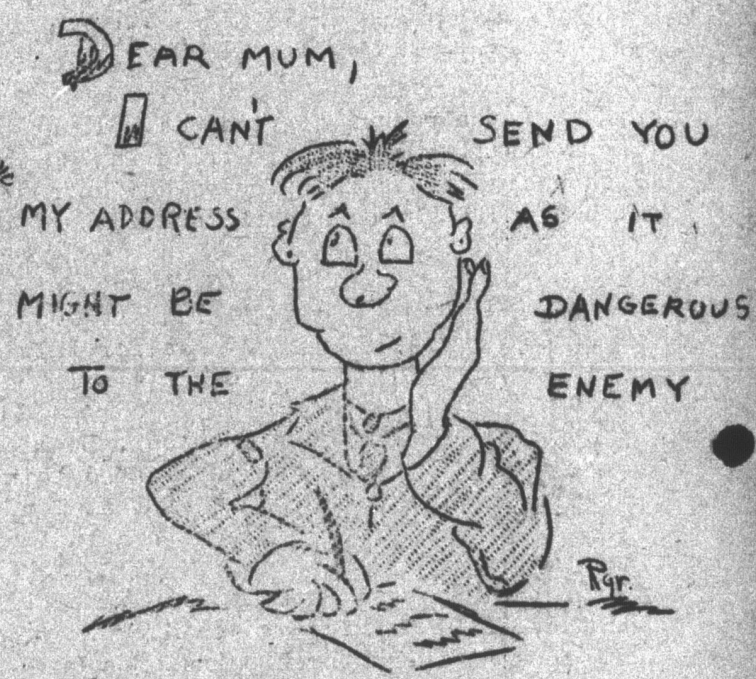 DEAR MUM,
I CAN'T SEND YOU
MY ADDRESS AS IT
MIGHT BE DANGEROUS
TO THE ENEMY
Rgr.